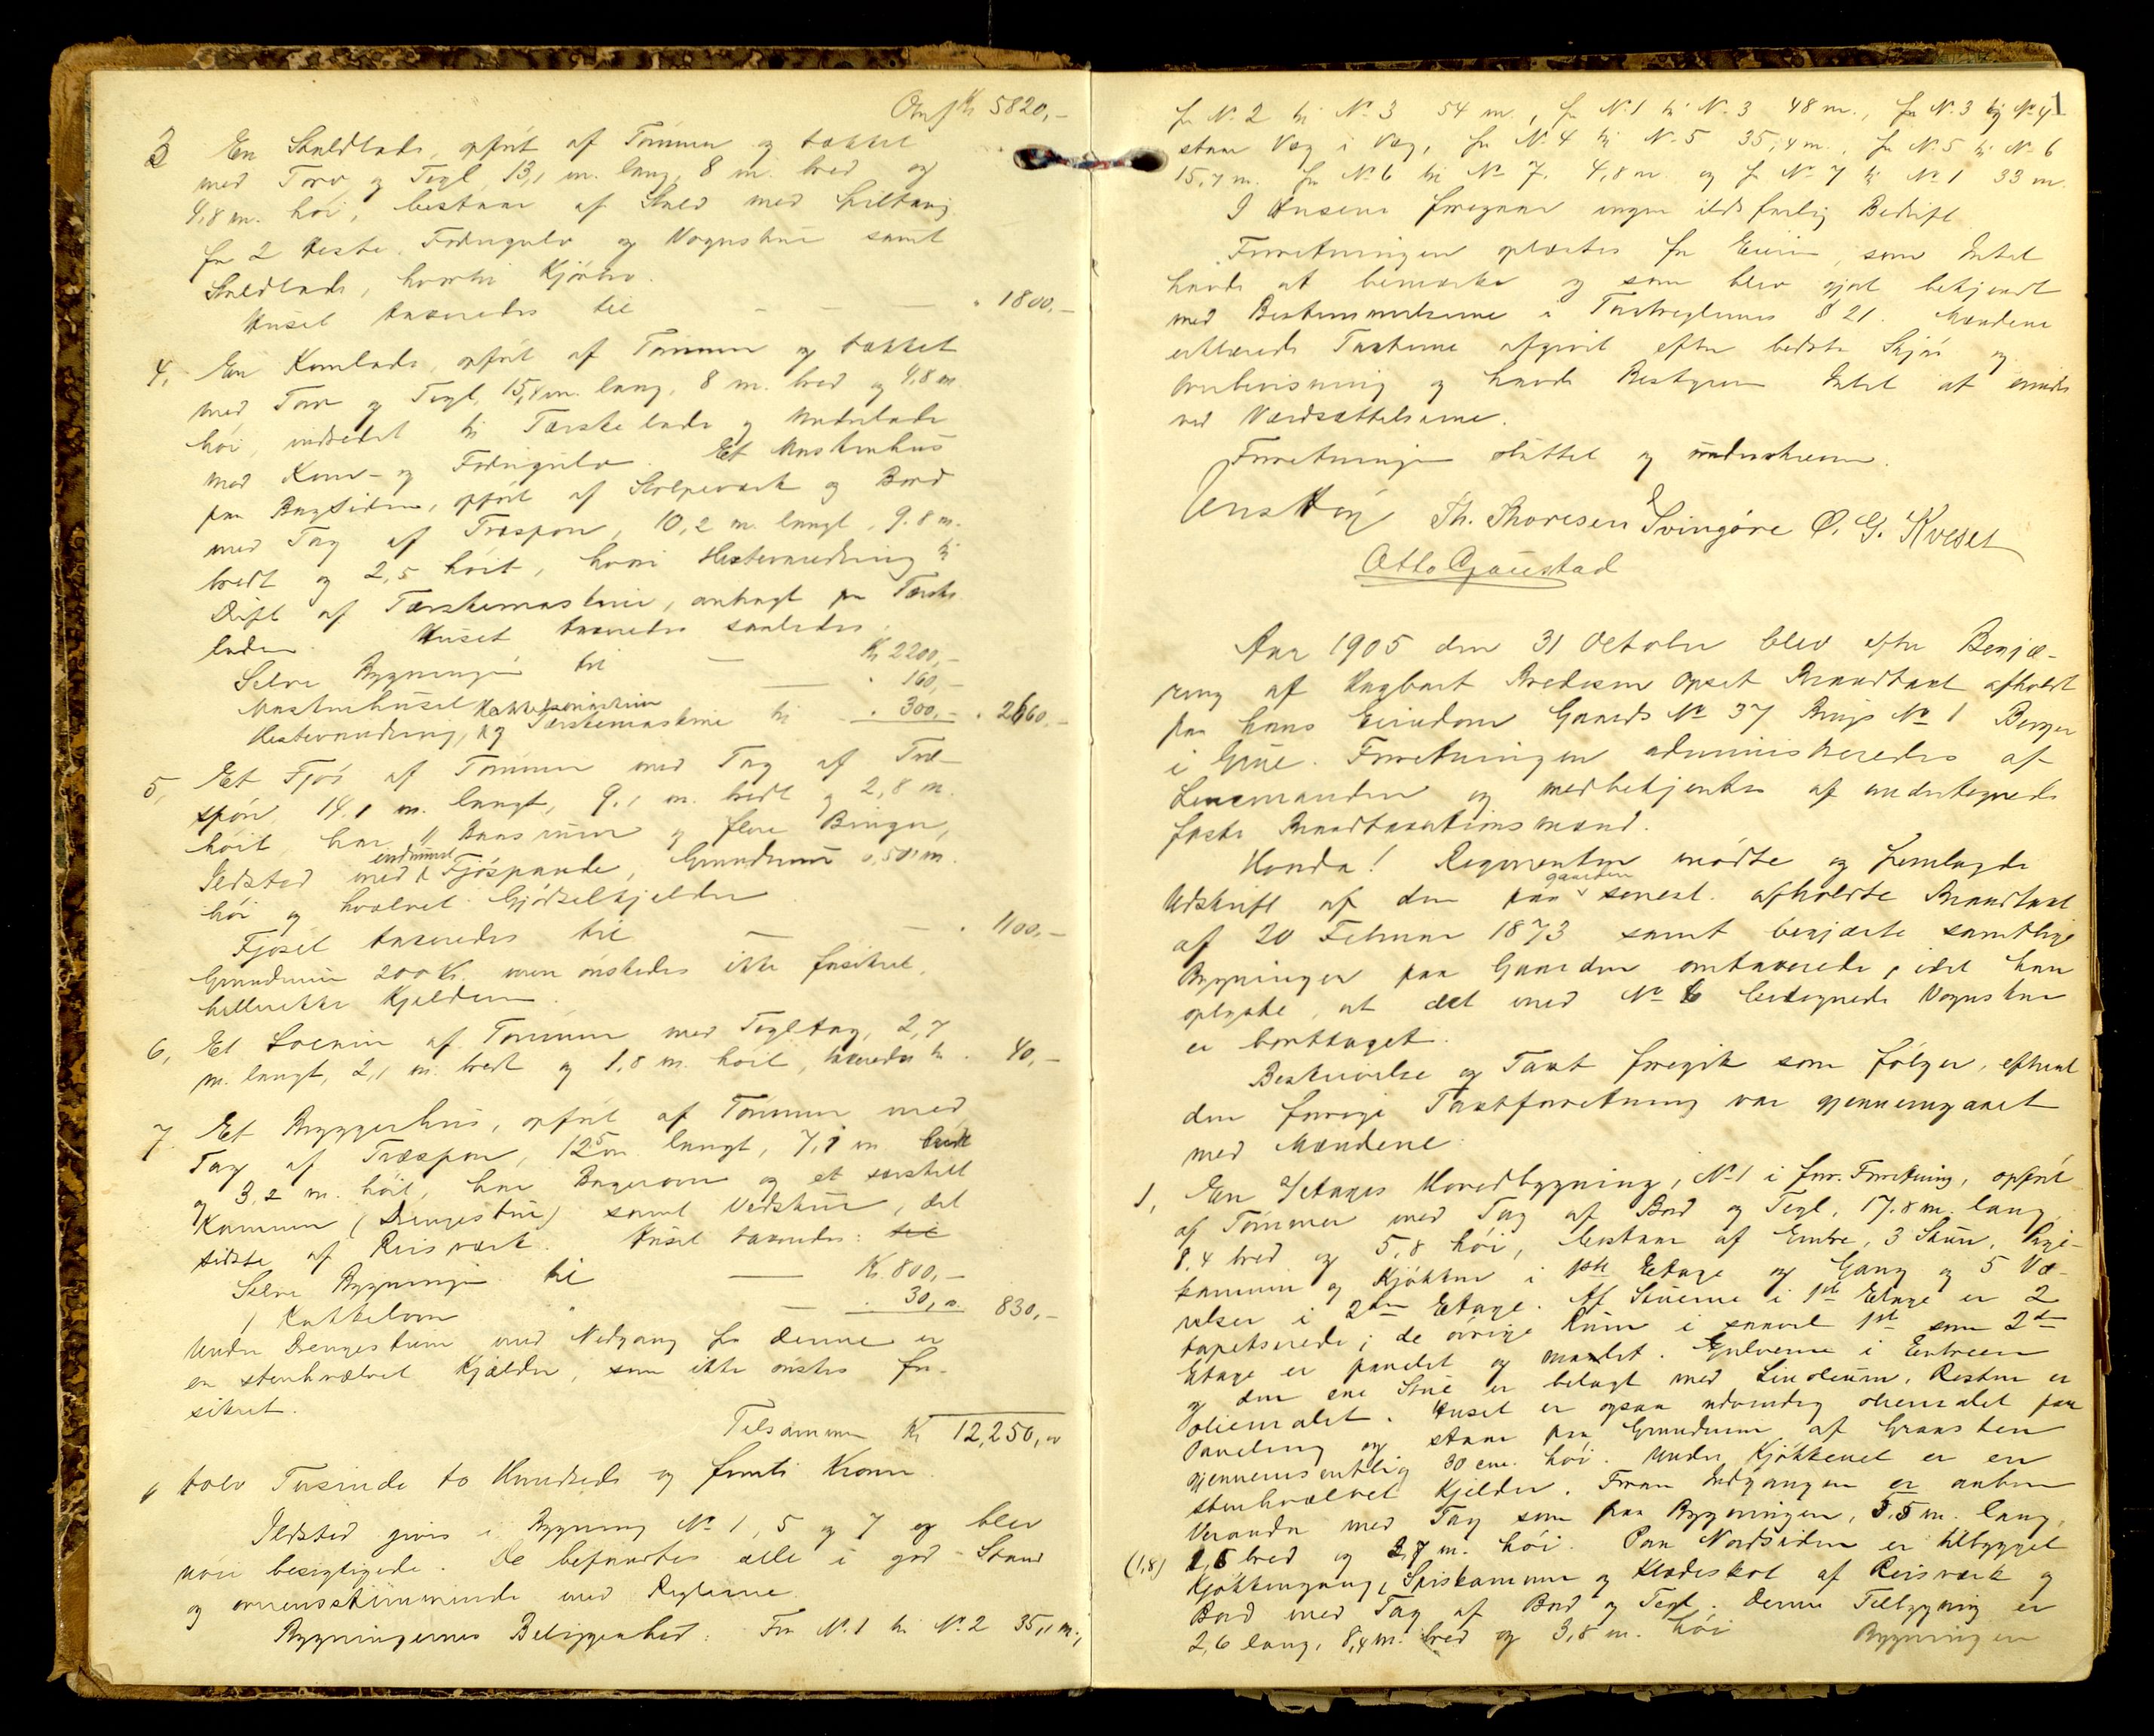 Omf Kr 5820,-
3 En Staldlade, opført af Tømmer og tækket
med Torv og Tegl, 13,1 m. lang, 8 m. bred og
4,8 m. høi, bestaar af Stald med Spiltaug
for 2 Heste, Fodergulv og Vognskur samt
Staldlade, hvortil Kjørbro.
Huset taxeredes til - - - " 1800,-
4, En Kornlade, opført af Tømmer og tækket
med Torv og Tegl, 15,4 m. lang, 8 m. bred og 4,8 m.
høi, indredet til Tærskelade og Underlade
med Korn- og Fodergulv. Et Maskinhus
paa Bagsiden, opført af Stolpeværk og Bord
med Tag af Træspon, 10,2 m. langt, 9.8 m.
bredt og 2,5 høit, hvori Hestevandring til
Drift af Tærskemaskine, anbragt paa Tærske
laden. Huset taxeredes saaledes:
Selve Bygningen til — Kr 2200,-
Maskinhuset — " 160,-
Hestevandring, Hakkelsmaskine og Tærskemaskine til " 300,- " 2660,-
5, Et Fjøs af Tømmer med Tag af Træ-
spon, 14,1 m. langt, 9,1 m. bredt og 2,8 m.
høit, har 11 Baasrum og flere Binger,
Ildsted med indmuret Fjøspande, Grundmur 0,50 m.
høi og hvælvet Gjødselkjelder
Fjøset taxeredes til — - " 1100,-
Grundmuren 200 Kr. men ønskedes ikke forsikret,
hellerikke Kjelderen.
6, Et Locum af Tømmer med Tegltag, 2,7
m. langt, 2,1 m. bredt og 1,8 m. høit, taxeredes til " 40,-
7 Et Bryggerhus, opført af Tømmer med
Tag af Træspon, 12,5 m. langt, 7,1 m bredt
og 3,2 m. høit, har Bagerovn og et særskilt
Kammer (Drengestue) samt Vedskur, det
sidste af Reisværk. Huset taxeredes: til
Selve Bygningen til — Kr. 800,-
1 Kakkelovn " — " 30,- " 830,-
Under Drengestuen med Nedgang fra denne er
en stenhvælvet Kjælder, som ikke ønskes for-
sikret.
Tilsammen Kr 12,250,00
tolv Tusinde to Hundrede og femti Kroner.
Ildsted gives i Bygning No 1, 5 og 7 og blev
nøie besigtigede. De befandtes alle i god Stand
og overensstemmende med Reglerne.
Bygningernes Beliggenhed: Fra No. 1 til No. 2 35,1 m.,
fra No. 2 til No. 3 54 m., fra No. 1 til No. 3 48 m., fra No. 3 til No. 4
staar Væg i Væg, fra No. 4 til No. 5 35,4 m., fra No. 5 til No. 6
15,7 m. fra No 6 til No 7. 4,8 m. og fra No 7 til No 1 33 m.
I Husene foregaar ingen ildsfarlig Bedrift
Forretningen oplæstes for Eieren, som Intet
havde at bemærke og som blev gjort bekjendt
med Bestemmelserne i Taxtreglernes § 21. Mændene
erklærede Taxterne afgivet efter bedste Skjøn og
Overbevisning og havde Bestyreren Intet at erindre
ved Værdsættelserne.
Forretningen sluttet og underskreven.
Jens Høy Th. Thoresen Svingøre O. G. Kveset
Otto Gaustad
Aar 1905 den 31 October blev efter Begjæ-
ring af Hagbart Bredesen Opset Brandtaxt afholdt
paa hans Eiendom Gaards No 37 Brugs No 1 Berger
i Grue. Forretningen administreredes af
Lensmanden og medbetjentes af undertegnede
faste Brandtaxationsmænd.
Hvorda! Reqvirenten mødte og fremlagde
Udskrift af den paa gaarden senest afholdte Brandtaxt
af 20 Februar 1873 samt begjærte samtlige
Bygninger paa Gaarden omtaxerede, idet han
oplyste, at det med No 6 betegnede Vognskur
er borttaget.
Beskrivelse og Taxt foregik som følger, efterat
den forrige Taxtforretning var gjennemgaaet
med Mændene:
1, En 2/etages Hovedbygning, No 1 i forr. Forretning, opført
af Tømmer med Tag af Bord og Tegl, 17.8 m. lang,
8.4 bred og 5,8 høi, bestaar af Entre, 3 Stuer, Pige-
kammer og Kjøkken i 1ste Etage og Gang og 5 Væ-
relser i 2den Etage. Af Stuerne i 1ste Etage er 2
tapetserede; de øvrige Rum i saavel 1ste som 2den
Etage er panelet og malet. Gulvene i Entreen
og den ene Stue er belagt med Linoleum, Resten er
oliemalet. Huset er ogsaa udvendig oliemalet paa
Paneling og staar paa Grundmur af Graasten
gjennemsnitlig 30 cm. høi. Under Kjøkkenet er en
stenhvælvet Kjelder. Foran Indgangen er anben
Veranda med Tag som paa Bygningen, 5,5 m. lang,
(1,8) 2,6 bred og 3,7 m. høi. Paa Nordsiden er tilbygget
Kjøkkengang, Spiskammer og Klædeskot af Reisværk og
Bord med Tag af Bord og Tegl. Denne Tilbygning er
2,6 lang, 8,4 m. bred og 3,8 m. høi Bygningen